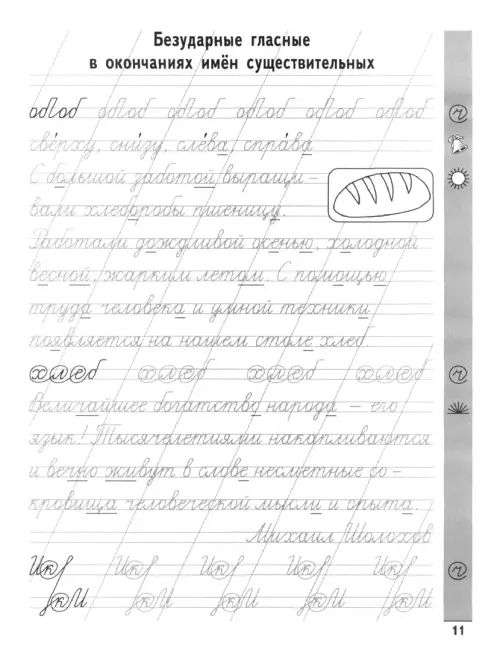 Безударные гласные
в окончаниях имён существительных
обПоб обПоб обПоб обПоб обПоб обПоб
све́рху, сни́зу, сле́ва, спра́ва
С большой заботой выращи-
вали хлеборобы пшеницу.
Работали дождливой осенью, холодной
весной, жарким летом. С помощью
труда человека и умной техники
появляется на нашем столе хлеб.
хлеб хлеб хлеб хлеб
Величайшее богатство народа – его
язык! Тысячелетиями накапливаются
и вечно живут в слове несметные со-
кровища человеческой мысли и опыта.
Михаил Шолохов
11